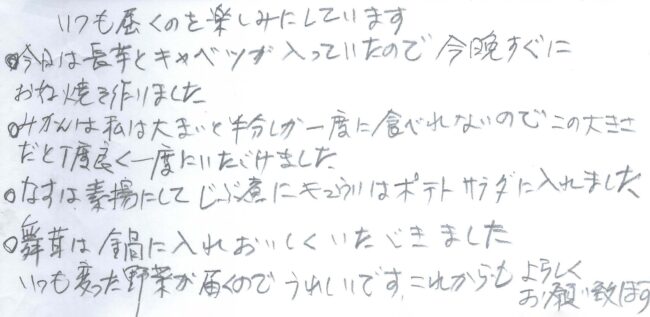 いつも届くのを楽しみにしています
○今日は長芋とキャベツが入っていたので今晩すぐに
おね焼き作りました
○みかんは私は大きいと半分しか一度に食べれないのでこの大きさ
だと丁度良く一度にいただけました。
○なすは素揚にしてじぶ煮にキュウリはポテトサラダに入れました
○舞茸は鍋に入れおいしくいただきました
いつも変った野菜が届くのでうれしいです。これからもよろしく
お願い致ます